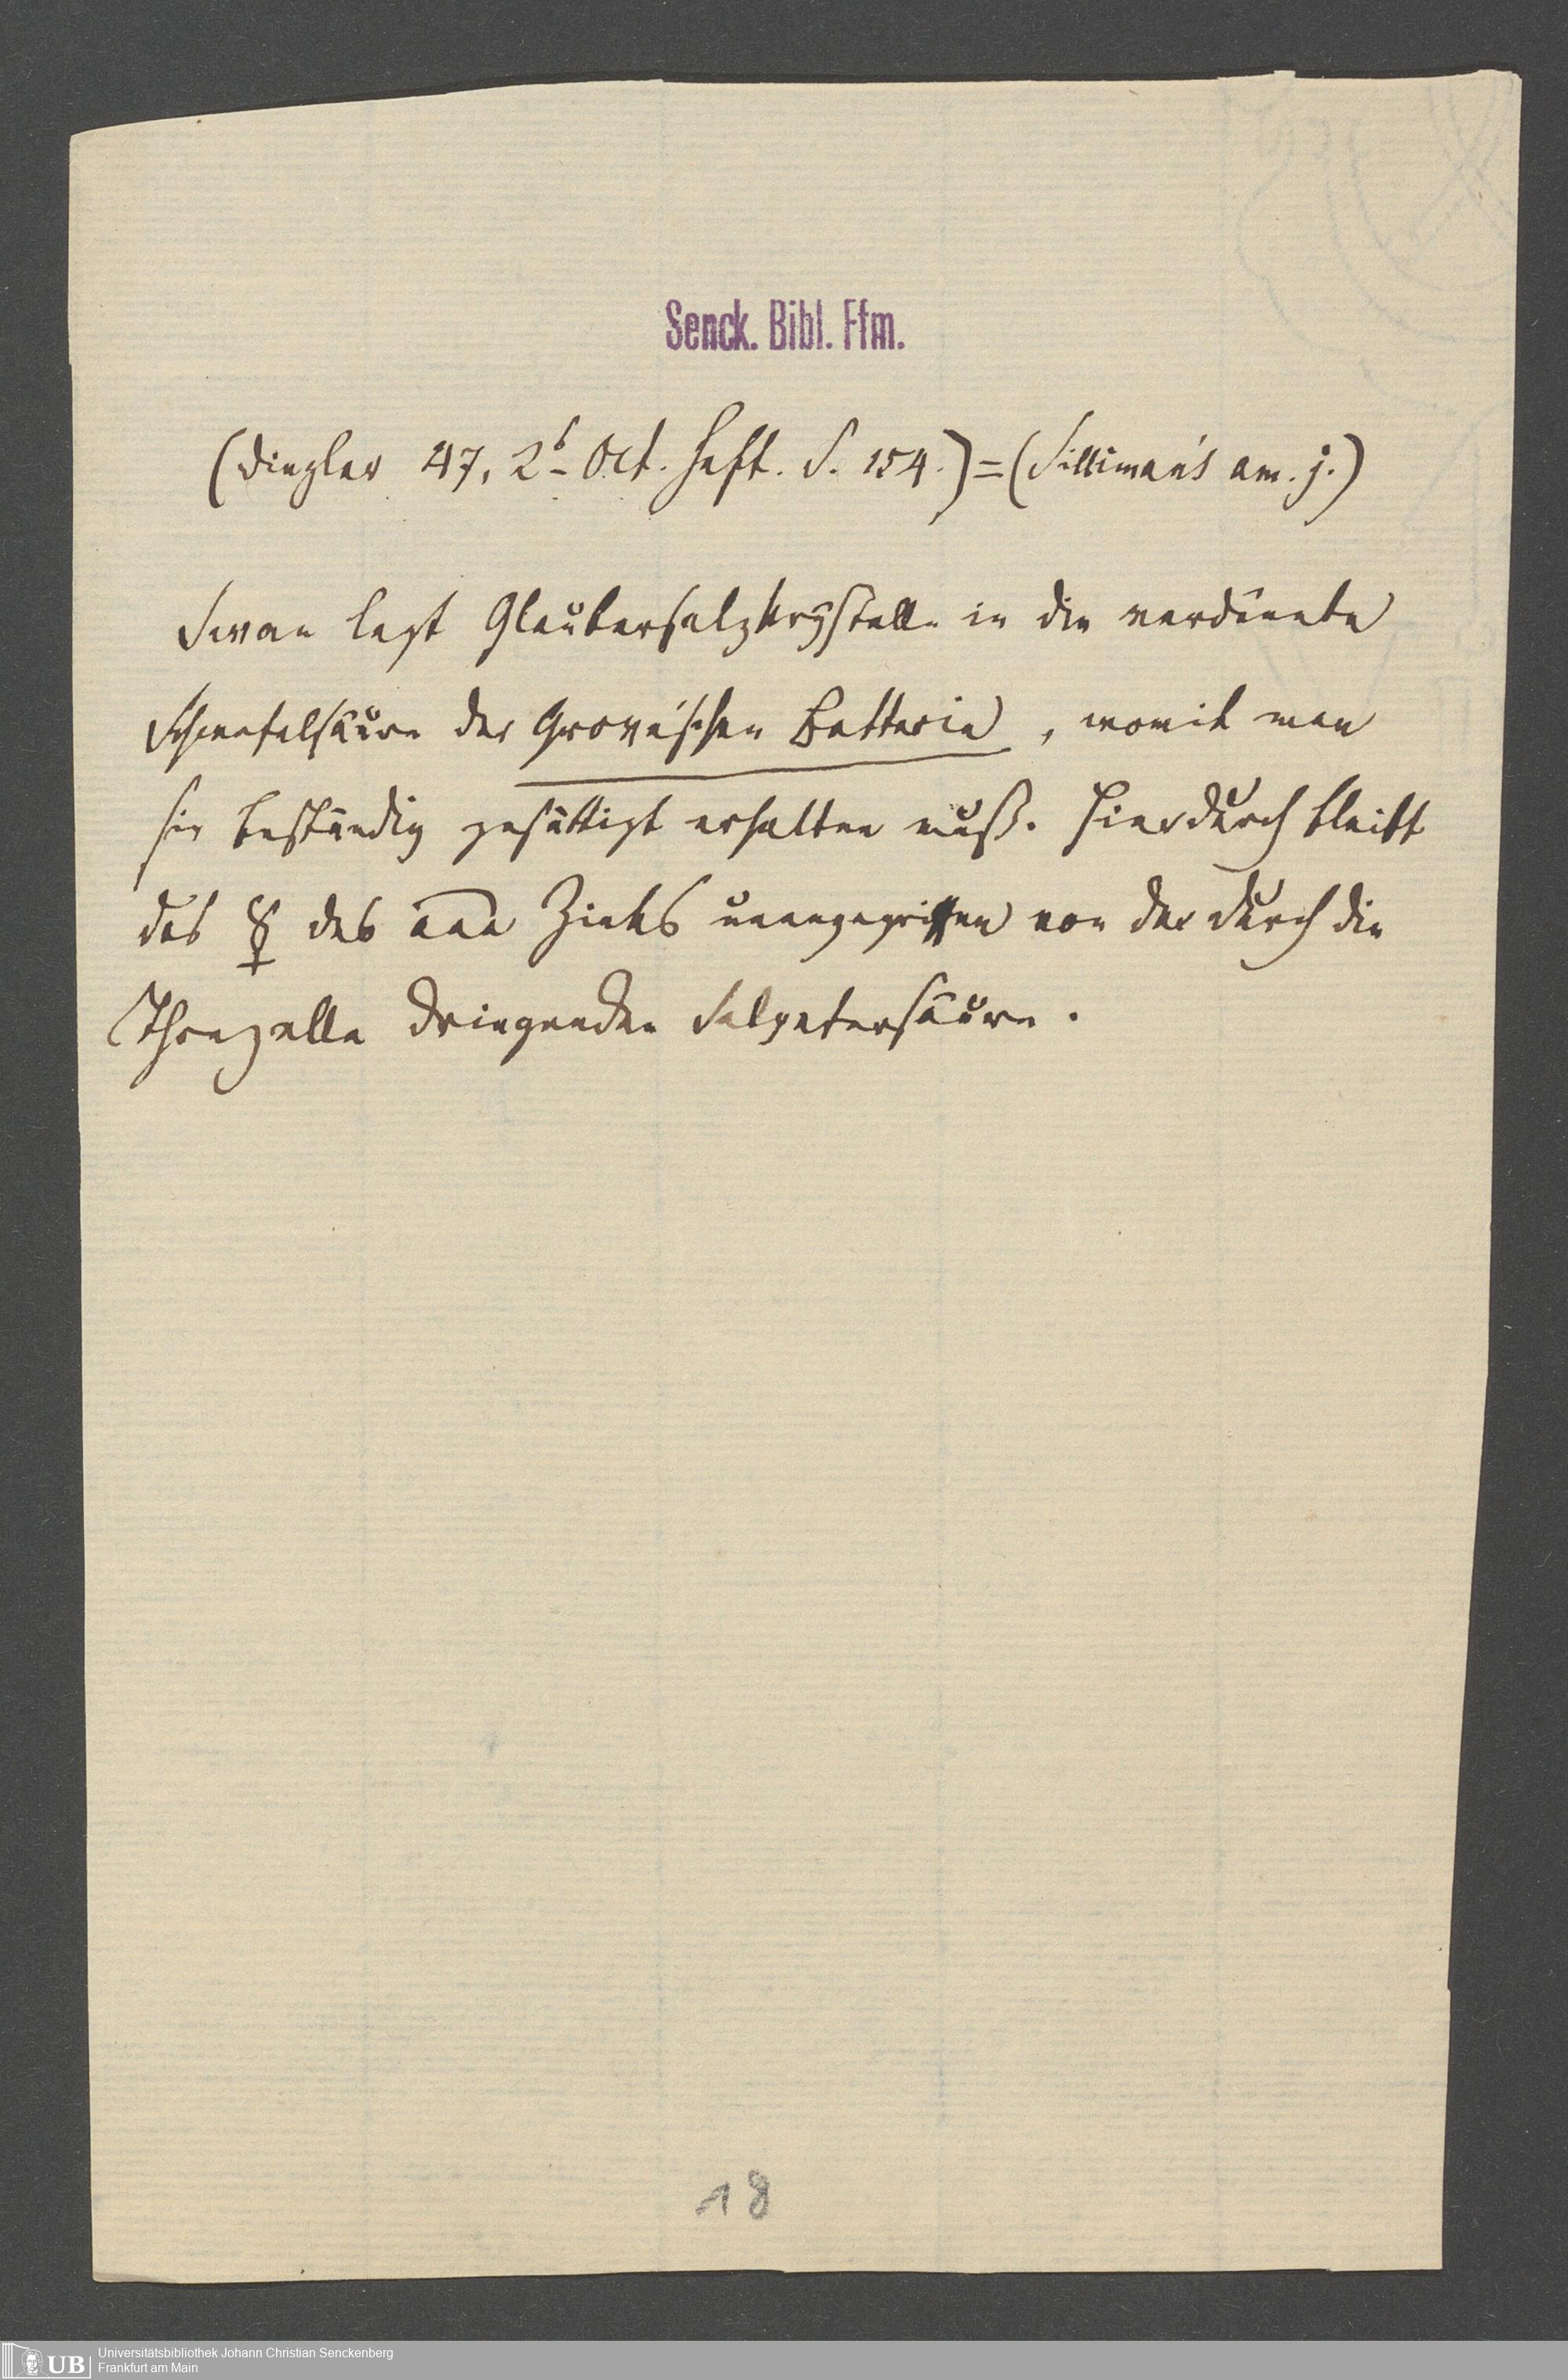 Senck. Bibl. Ffm.
(Dingler 47, 2ˢ Oct. Heft. S. 154.) = (Silliman's am. j.)
Swan legt Glaubersalzkrystalle in die verdünnte
Schwefelsäure der Grove'schen Batterie, womit man
sie beständig gesättigt erhalten muß. Hierdurch bleibt
das ☿ des aaa Zinks unangegriffen von der durch die
Thonzelle dringenden Salpetersäure.
18
UB
Universitätsbibliothek Johann Christian Senckenberg
Frankfurt am Main